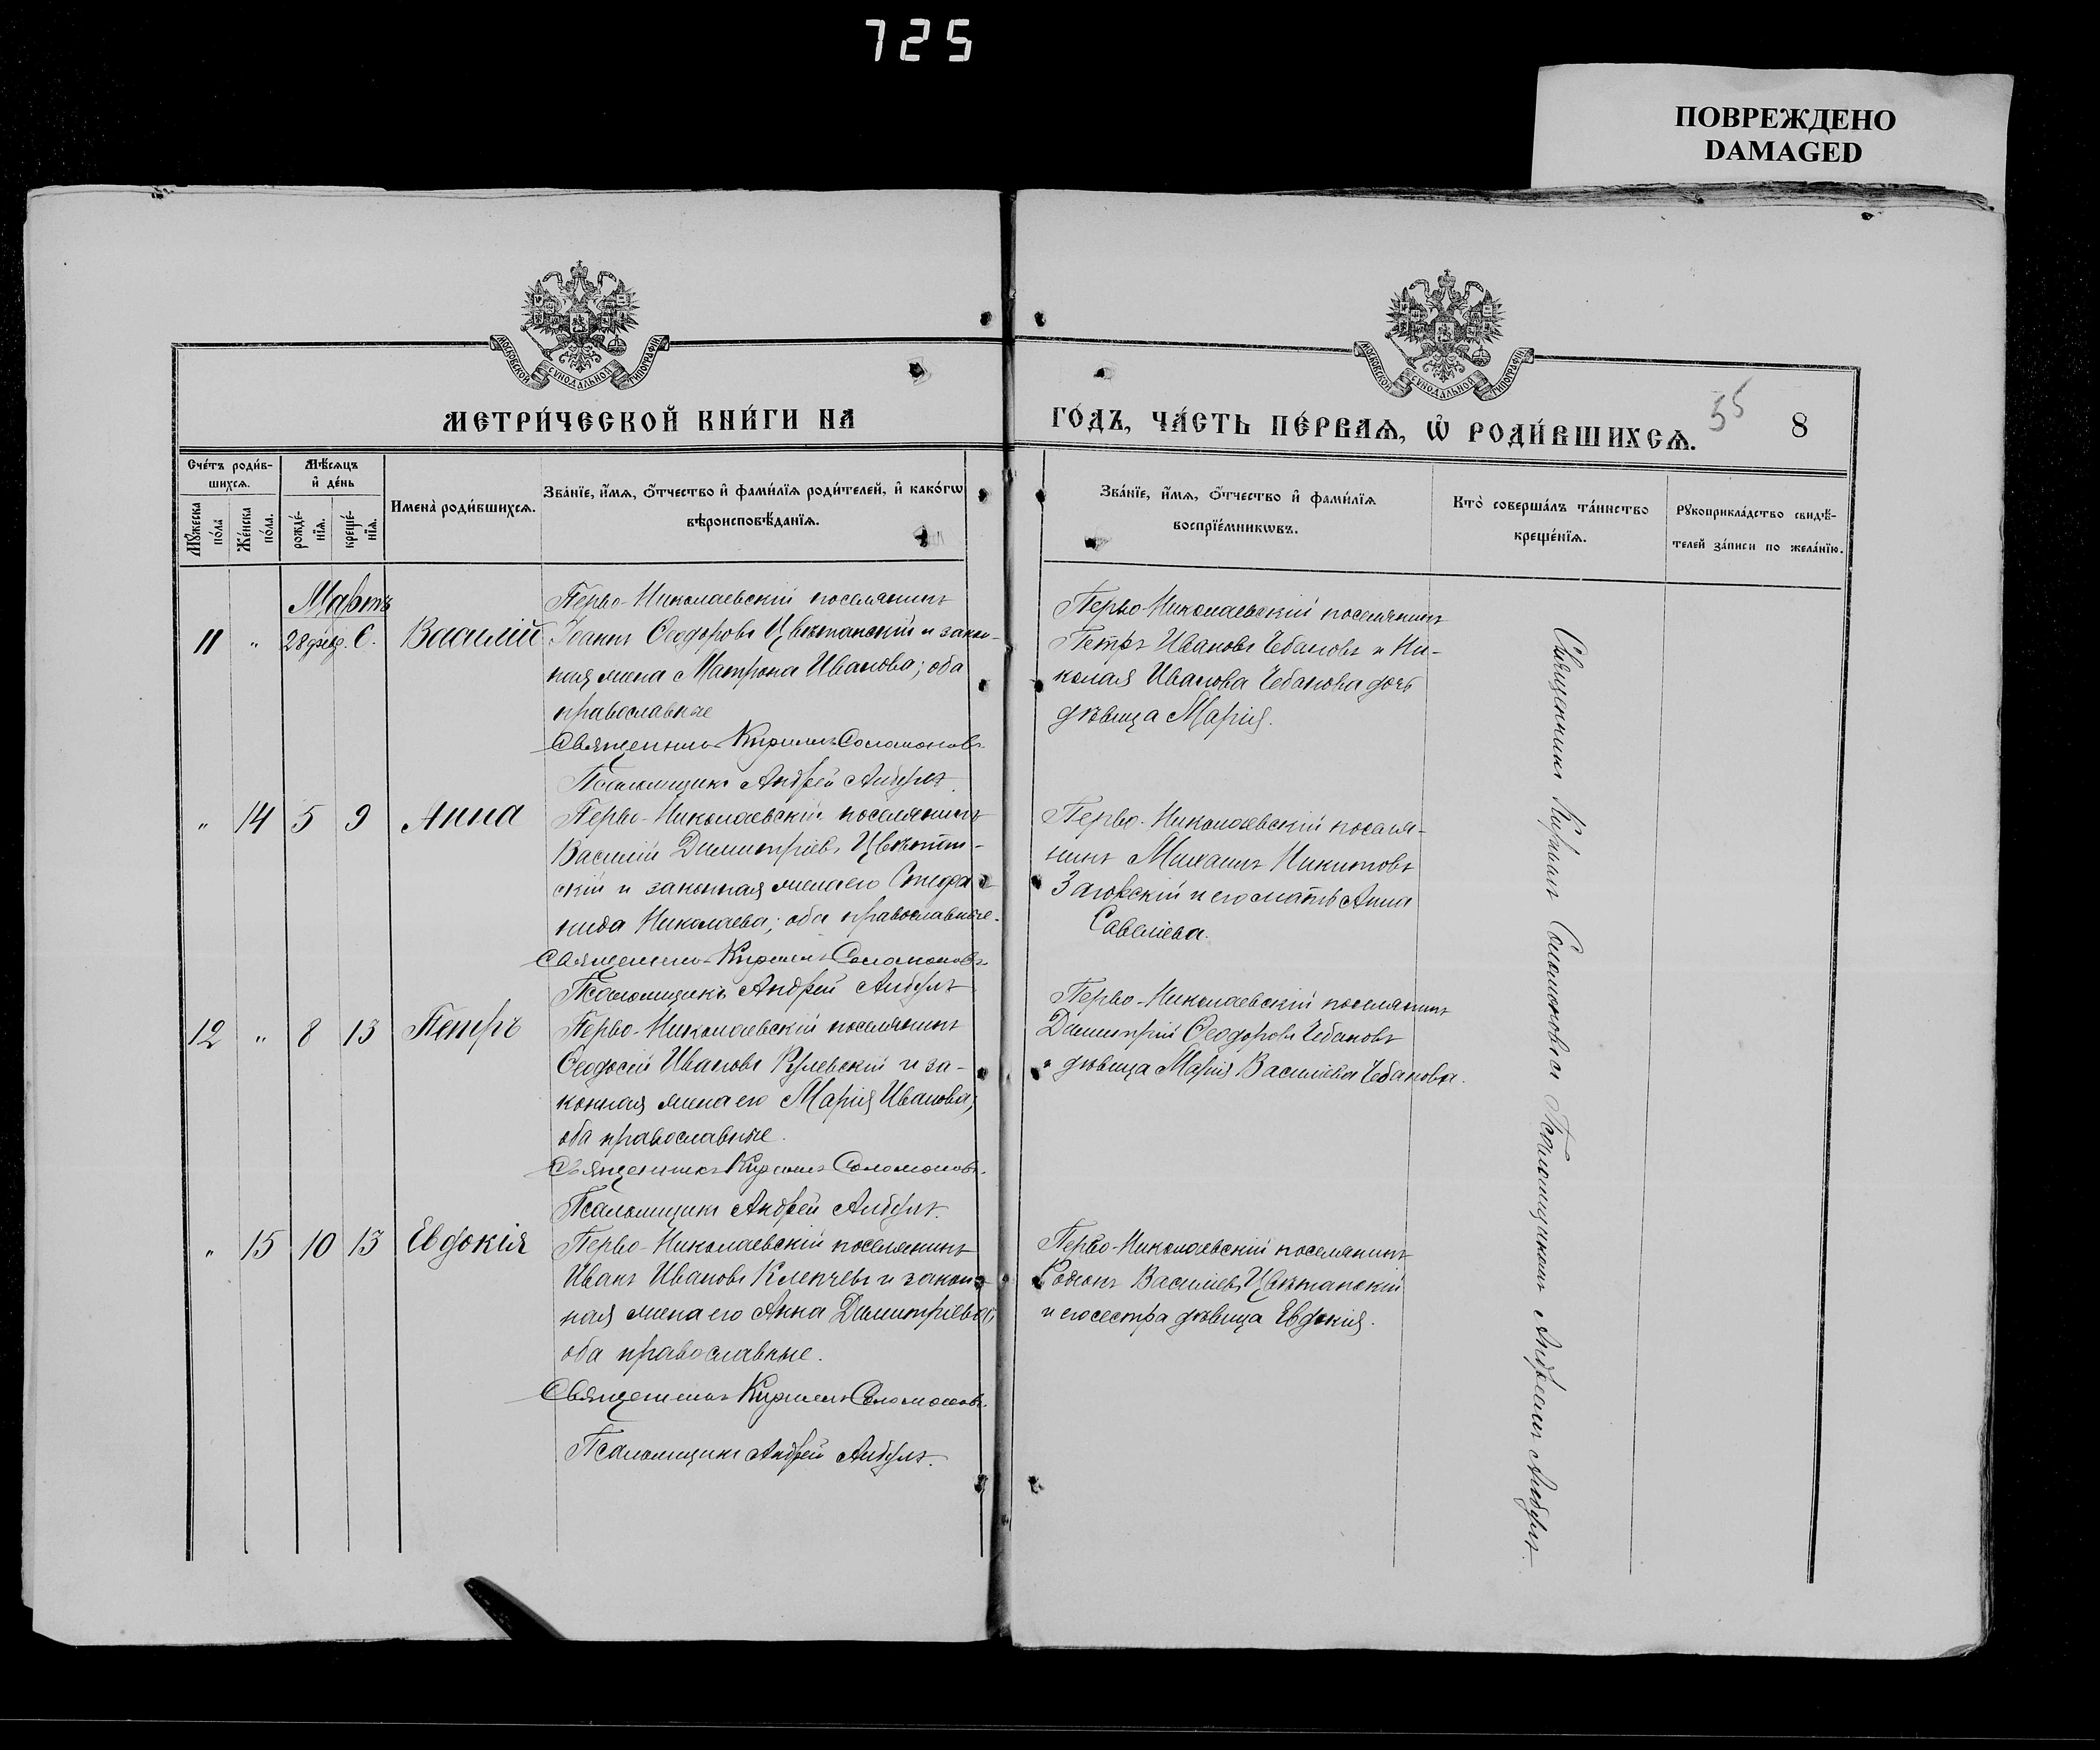 725
ПОВРЕЖДЕНО
DAMAGED
МОСКОВСКОЙ СѴНОДАЛЬНОЙ ТИПОГРАФІИ
МОСКОВСКОЙ СѴНОДАЛЬНОЙ ТИПОГРАФІИ
МЕТРИ́ЧЕСКОЙ КНИ́ГИ НА
ГО́ДЪ, ЧА́СТЬ ПЕ́РВАѦ, Ѡ РОДИ́ВШИХСѦ.
55
8
Сче́тъ роди́в-
шихсѧ.
Мѣ́сѧцъ
и҆ де́нь
Мꙋ́жеска
по́ла
Же́нска
по́ла.
рожде́-
нїѧ.
креще́-
нїѧ.
Имена̀ роди́вшихсѧ.
Зва́нїе, и҆́мѧ, ѻ҆́тчество и҆ фами́лїѧ роди́телей, и҆ како́гѡ
вѣроисповѣ́данїѧ.
Зва́нїе, и҆́мѧ, ѻ҆́тчество и҆ фами́лїѧ
воспрїе́мникѡвъ.
Кто̀ соверша́лъ та́инство
креще́нїѧ.
Рꙋкоприкла́дство свидѣ́-
телей за́писи по жела́нїю.
Мартъ
11 " 28 февр. 6. Василій
Перво-Николаевскій поселянинъ
Іоаннъ Ѳеодоровъ Цвѣтанскій и закон-
ная жена Матрона Иванова; оба
православные
Священникъ Кириллъ Соломоновъ
Псаломщикъ Андрей Амбулъ.
Перво-Николаевскій поселянинъ
Петръ Ивановъ Чебановъ и Ни-
колая Иванова Чебанова дочь
дѣвица Марія.
" 14 5 9 Анна
Перво-Николаевскій поселянинъ
Василій Димитріевъ Цвѣтан-
скій и законная жена его Стефа-
нида Николаева; оба православные.
Священникъ Кириллъ Соломоновъ
Псаломщикъ Андрей Амбулъ
Перво-Николаевскій поселя-
нинъ Михаилъ Никитовъ
Загорскій и его мать Анна
Савелiева.
12 " 8 13 Петръ
Перво-Николаевскій поселянинъ
Ѳеодосій Ивановъ Кулевскій и за-
конная жена его Марія Иванова;
оба православные.
Священникъ Кириллъ Соломоновъ.
Псаломщикъ Андрей Амбулъ.
Перво-Николаевскій поселянинъ
Димитрій Ѳеодоровъ Чебановъ
и дѣвица Марія Василіева Чебанова.
" 15 10 13 Евдокія
Перво-Николаевскій поселянинъ
Иванъ Ивановъ Клепчевъ и закон-
ная жена его Анна Димитріева;
оба православные.
Священникъ Кириллъ Соломоновъ.
Псаломщикъ Андрей Амбулъ.
Перво-Николаевскій поселянинъ
Родіонъ Василіевъ Цвѣтанскій
и его сестра дѣвица Евдокія.
Священникъ Кириллъ Соломоновъ съ Псаломщикомъ Андреемъ Амбулъ.